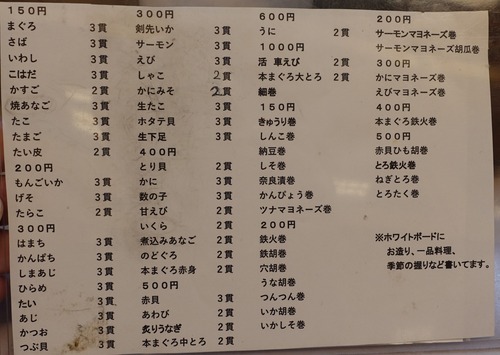 150円
まぐろ 3貫
さば 3貫
いわし 3貫
こはだ 3貫
かすご 2貫
焼あなご 3貫
たこ 3貫
たまご 3貫
たい皮 2貫
200円
もんごいか 3貫
げそ 3貫
たらこ 2貫
300円
はまち 3貫
かんぱち 3貫
しまあじ 3貫
ひらめ 3貫
たい 3貫
あじ 3貫
かつお 3貫
つぶ貝 3貫
300円
剣先いか 3貫
サーモン 3貫
えび 3貫
しゃこ 2貫
かにみそ 2貫
生たこ 3貫
ホタテ貝 3貫
生下足 3貫
400円
とり貝 2貫
かに 3貫
数の子 3貫
甘えび 2貫
いくら 2貫
煮込みあなご 2貫
のどぐろ 2貫
本まぐろ赤身 2貫
500円
赤貝 3貫
あわび 2貫
炙りうなぎ 2貫
本まぐろ中とろ 2貫
600円
うに 2貫
1000円
活 車えび 2貫
本まぐろ大とろ 2貫
細巻
150円
きゅうり巻
しんこ巻
納豆巻
しそ巻
奈良漬巻
かんぴょう巻
ツナマヨネーズ巻
200円
鉄火巻
鉄胡巻
穴胡巻
うな胡巻
つんつん巻
いか胡巻
いかしそ巻
200円
サーモンマヨネーズ巻
サーモンマヨネーズ胡瓜巻
300円
かにマヨネーズ巻
えびマヨネーズ巻
400円
本まぐろ鉄火巻
500円
赤貝ひも胡巻
とろ鉄火巻
ねぎとろ巻
とろたく巻
※ホワイトボードに
お造り、一品料理、
季節の握りなど書いてます。